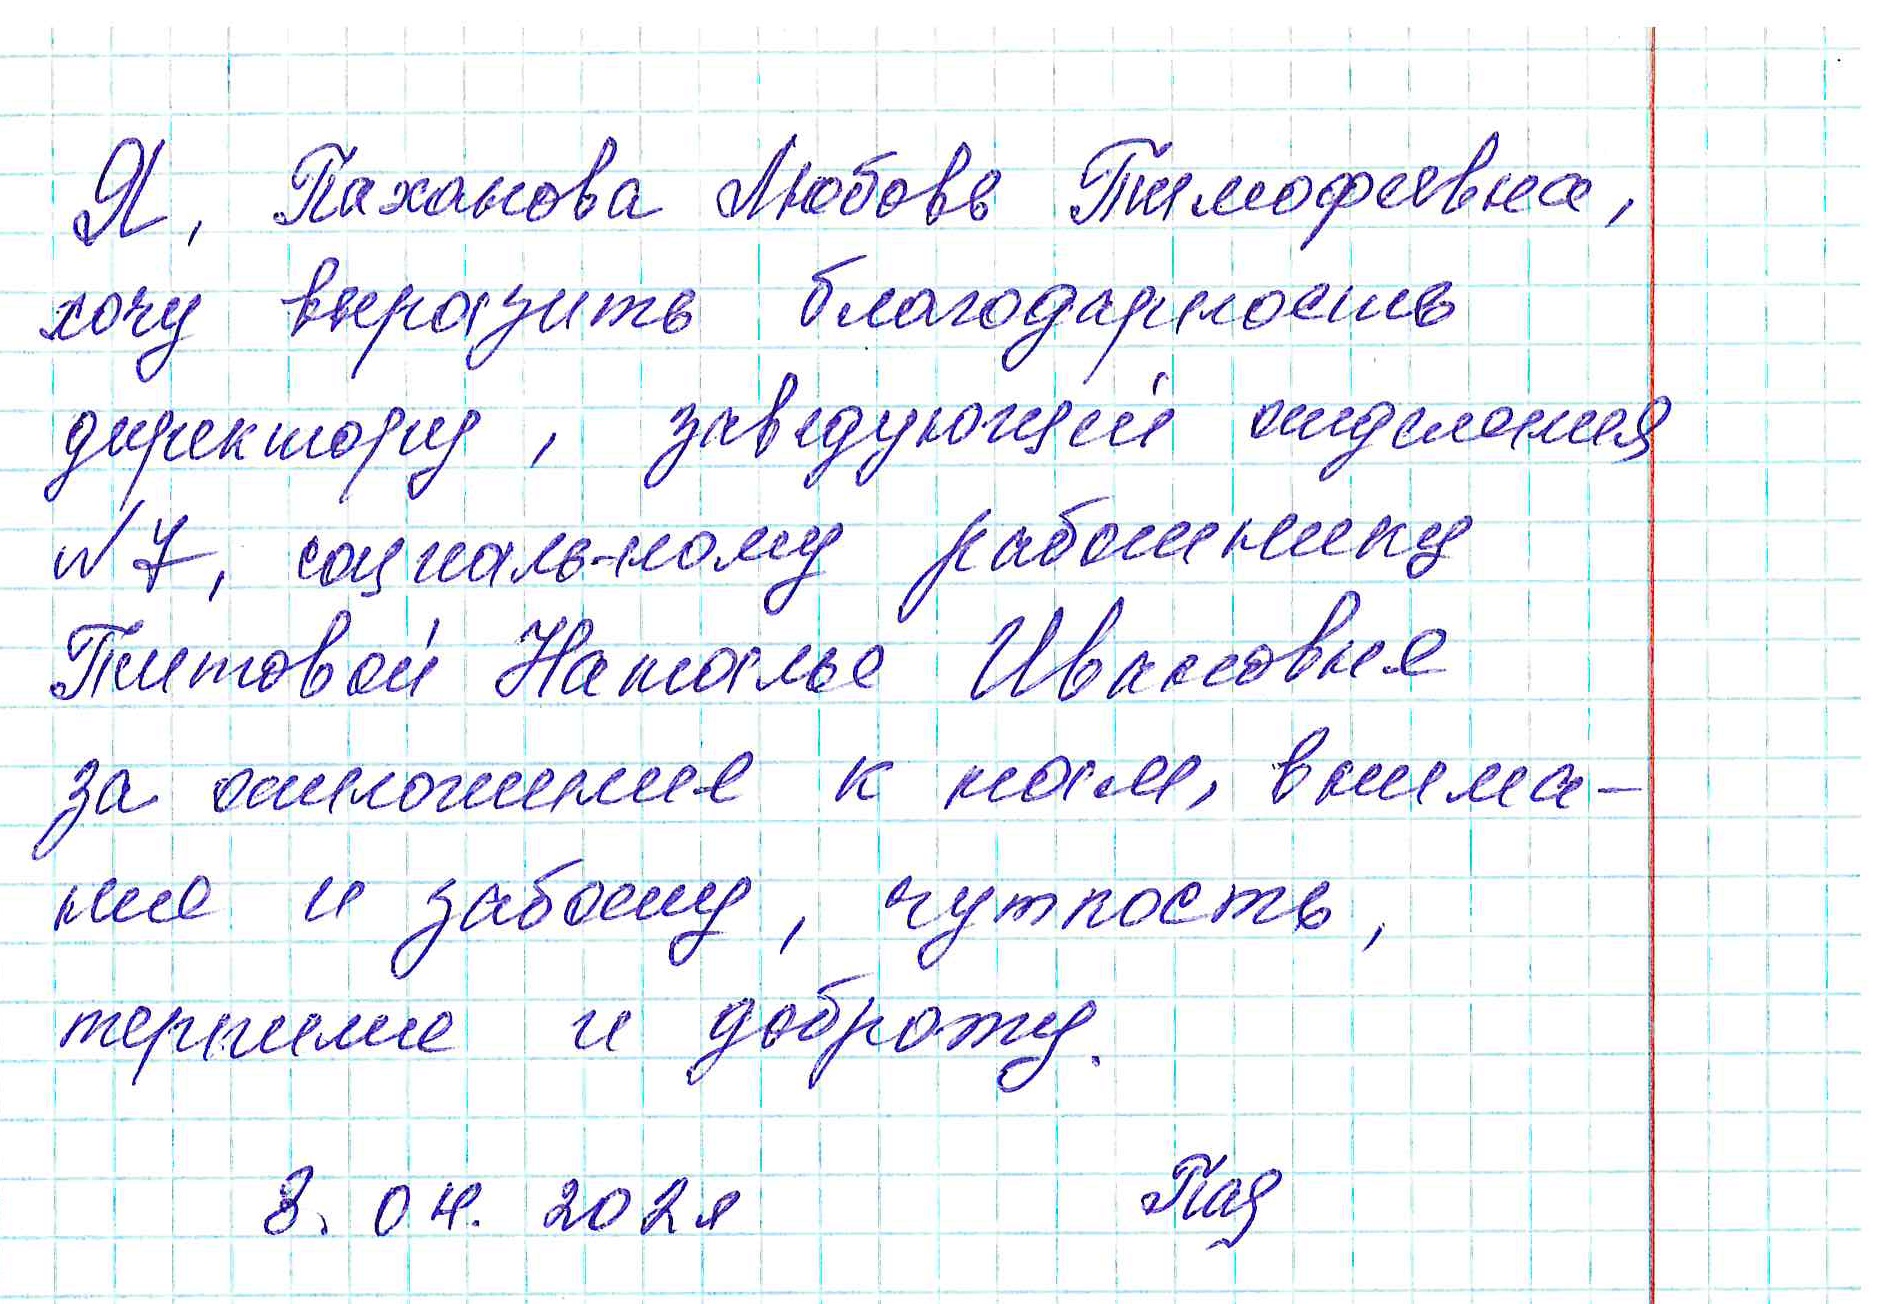 Я, Паханова Любовь Тимофеевна,
хочу выразить благодарность
директору, заведующей отделения
№7, социальному работнику
Титовой Наталье Ивановне
за отношение к нам, внима-
ние и заботу, чуткость,
терпение и доброту.
8. 04. 202